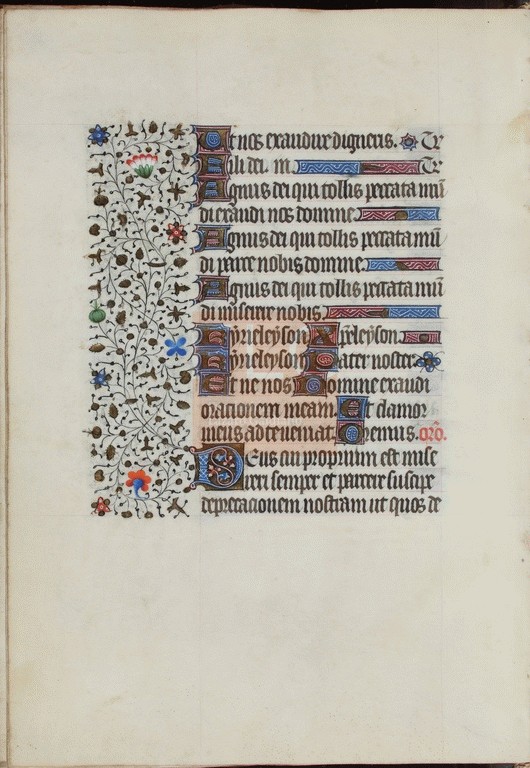 Ut nos exaudire digneris. Te r
Fili dei. m Te r
Agnus dei qui tollis peccata mũ
di exaudi nos domine.
Agnus dei qui tollis peccata mũ
di parce nobis domine.
Agnus dei qui tollis peccata mũ
di miserere nobis.
Kyrieleyson. Xpeleyson.
Kyrieleyson Pater noster
Et ne nos Domine exaudi
orationem meam. Et clamor
meus ad te veniat. Oremus. orõ.
Deus cui proprium est mise
reri semper et parcere suscipe
deprecationem nostram ut quos de